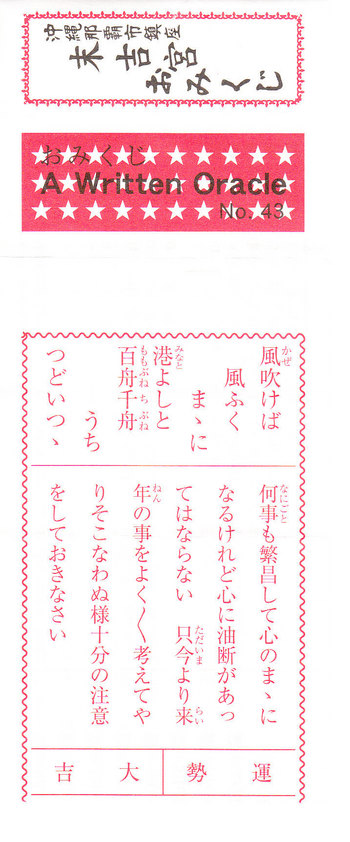 沖縄那覇市鎮座
末吉宮
おみくじ
おみくじ
A Written Oracle
No. 43
風吹けば
風ふく
まゝに
港よしと
百舟千舟
うち
つどいつゝ
何事も繁昌して心のまゝに
なるけれど心に油断があっ
てはならない 只今より来
年の事をよく〱考えてや
りそこなわぬ様十分の注意
をしておきなさい
運勢
大吉